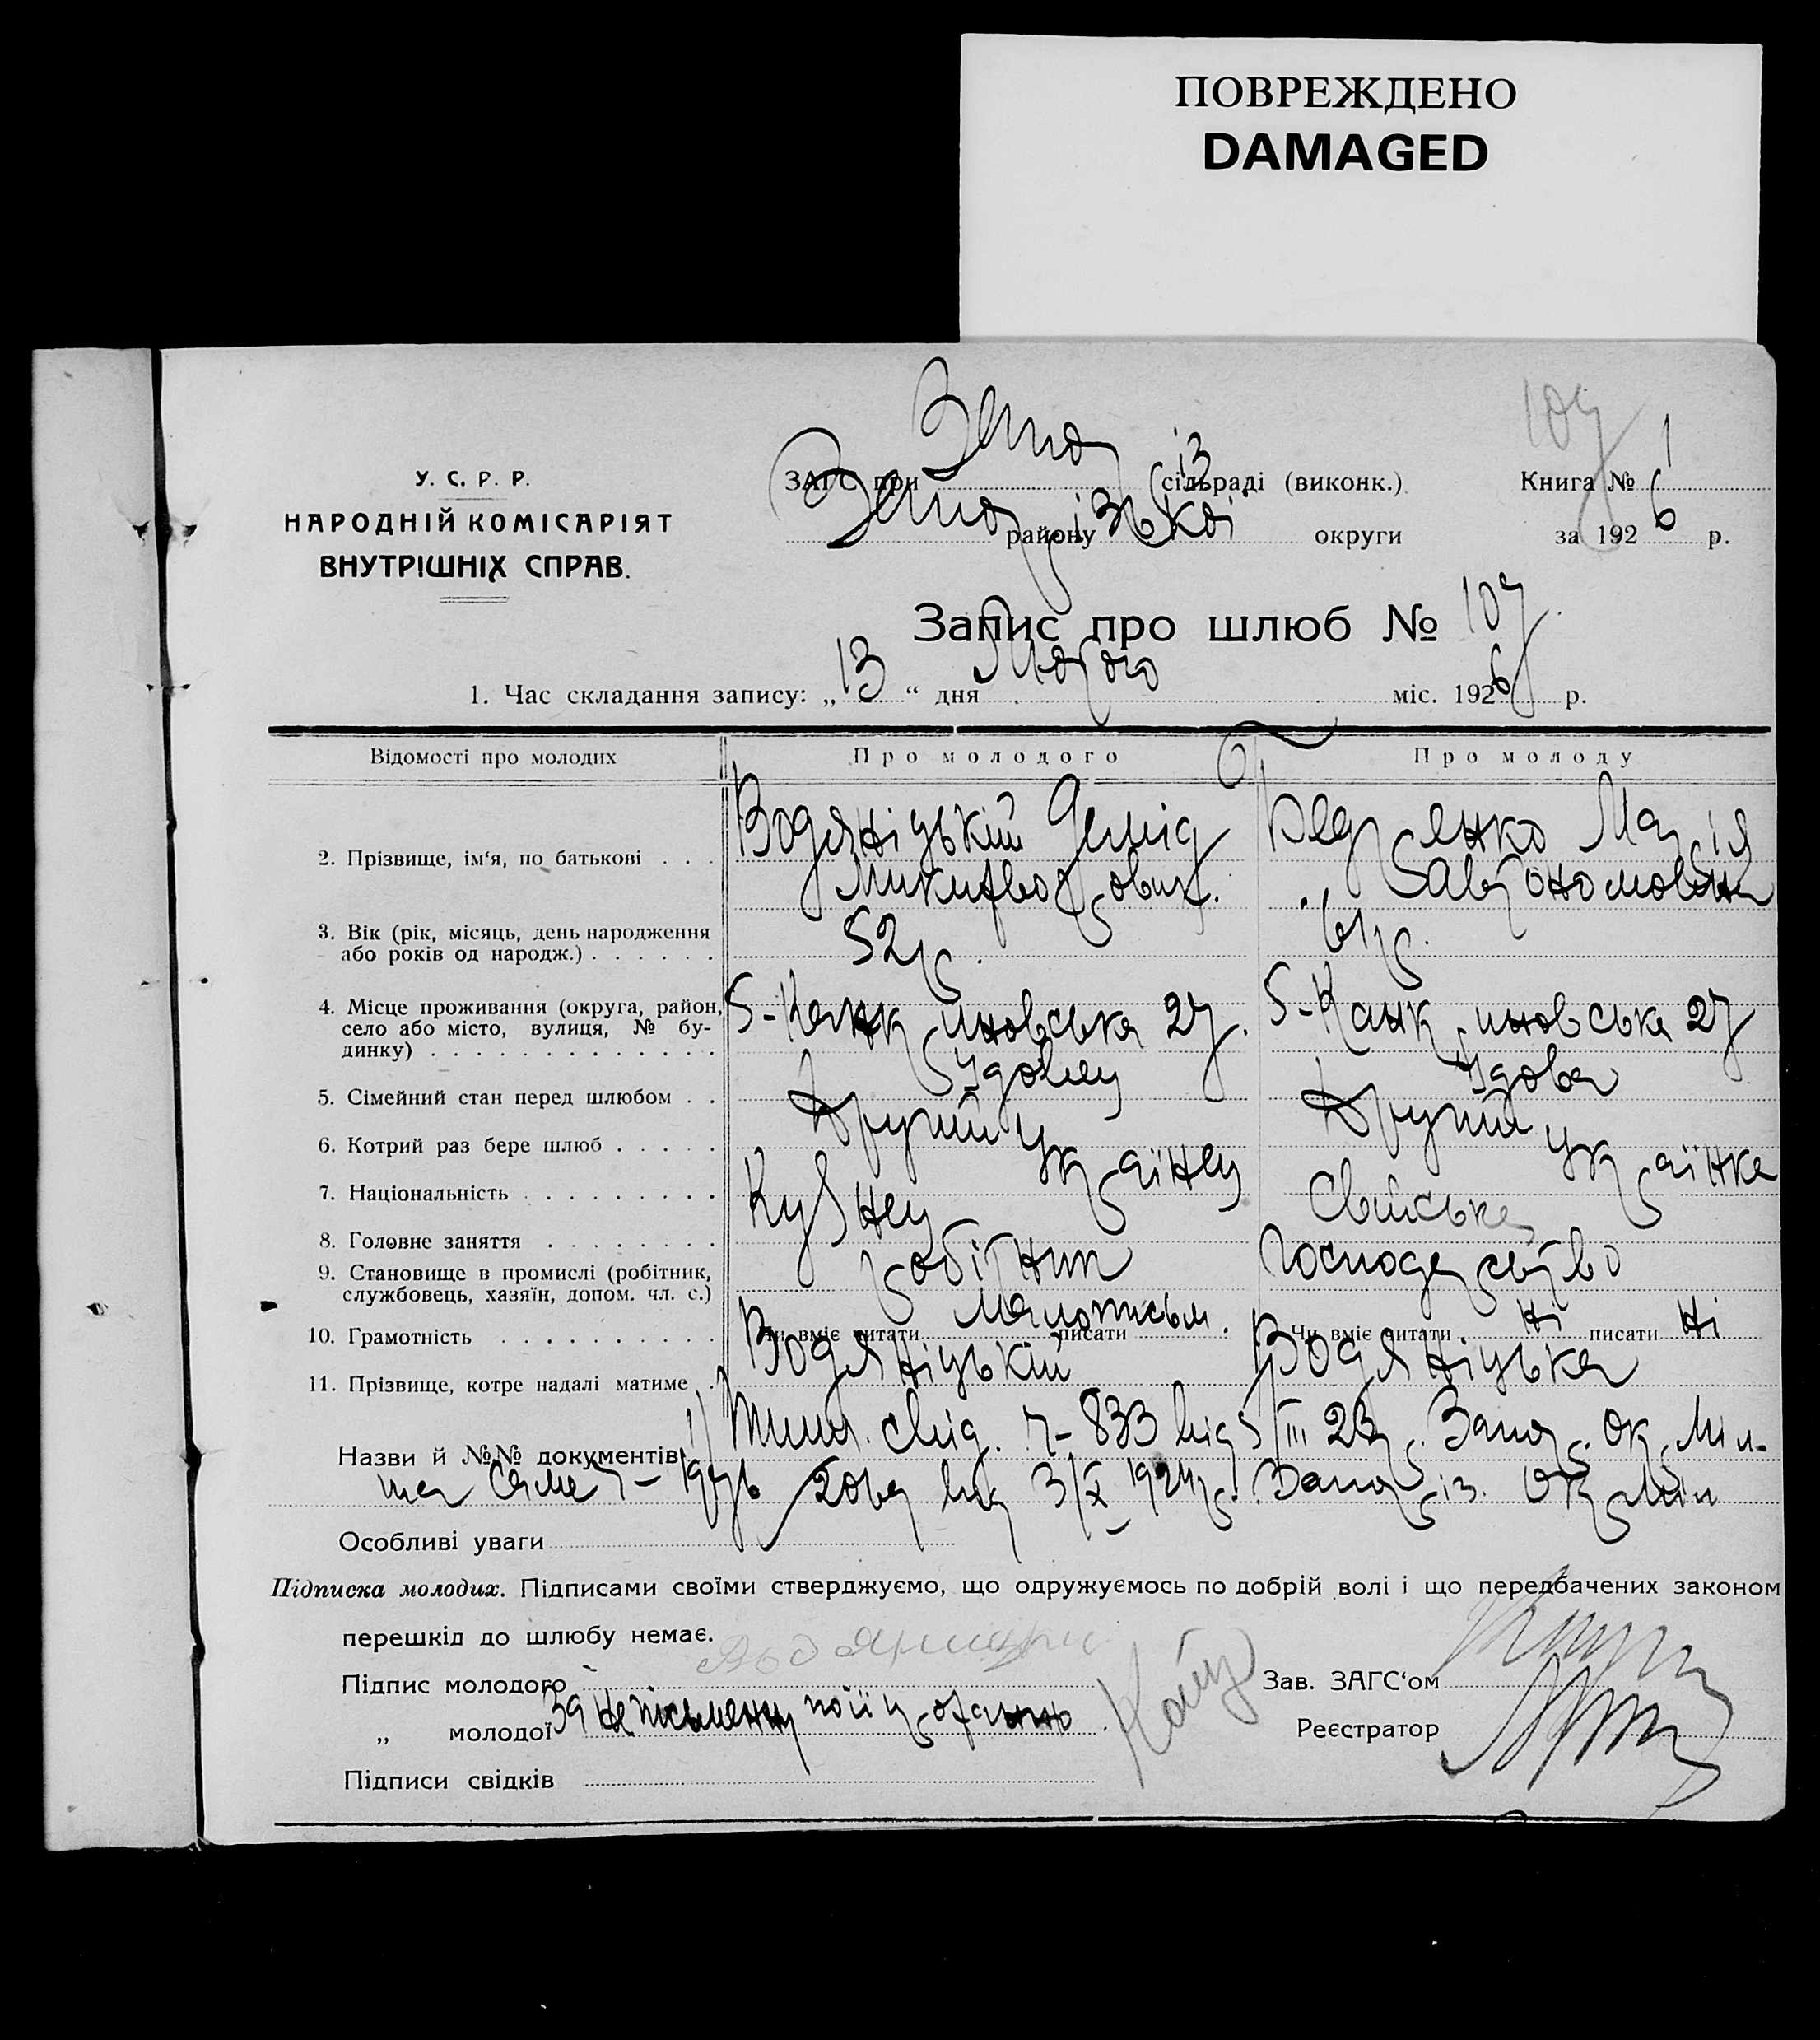 ПОВРЕЖДЕНО
DAMAGED
У. С. Р. Р.
НАРОДНІЙ КОМІСАРІЯТ
ВНУТРІШНІХ СПРАВ.
ЗАГС при Запор із сільраді (виконк.)
Запорізької району округи
107
Книга № 1
за 1926 р.
Запис про шлюб № 107
1. Час складання запису: „13“ дня Лютого міс. 1926 р.
Відомості про молодих Про молодого Про молоду
2. Прізвище, ім‘я, по батькові . . . Водяніцький Демід Бедренко Марія
Микифорович. Савтономовна
3. Вік (рік, місяць, день народження або років од народж.) . . . . . . 52 р. 61 р.
4. Місце проживання (округа, район, село або місто, вулиця, № будинку) . . . . . . . . . . . . . 5-Канкриновська 27. 5-Канкриновська 27
5. Сімейний стан перед шлюбом . . Удовец Удова
6. Котрий раз бере шлюб . . . . . Другий Другий
7. Національність . . . . . . . . . Українец Українка
8. Головне заняття . . . . . . . . Кузнец Свійське
9. Становище в промислі (робітник, службовець, хазяїн, допом. чл. с.) робітник господарство
10. Грамотність . . . . . . . . . . Чи вміє читати Малописьм. писати Чи вміє читати Ні писати Ні
11. Прізвище, котре надалі матиме . Водяніцький Водяніцька
Назви й №№ документів 1) свід. 7-833 від 5/III 23 р. Запор. Окр. Міл.
від 3/X 1924 р. Запоріз. Окр Міл
Особливі уваги
Підписка молодих. Підписами своїми стверджуємо, що одружуємось по добрій волі і що передбачених законом
перешкід до шлюбу немає.
Підпис молодого Зав. ЗАГС‘ом
„ молодої За неписьменну по її Реєстратор
Підписи свідків